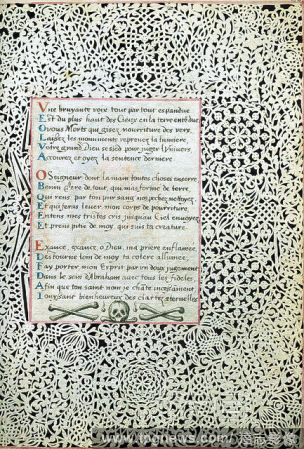 Vne bruyante voix tout par tout espandue
Est du plus haut des Cieux en la terre entēdue
O vous Morts qui gisez nourriture des vers,
Laissez les monuments reprenez la lumiere
Votre grand Dieu se sied pour juger l'Vnivers
Accourez et oyez la sentence derniere
O Seigneur dont la main toutes choses enserre
Benin Pere de tout, qui mas forme de terre
Qui rens par ton pur sang nos pechez nettoyez
Et qui feras lever mon corps de pourriture,
Entens mes tristes cris jusqu'au Ciel envoyez
Et prens pitie de moy, qui suis ta creature.
Exauce, exauce, o Dieu, ma priere enflamee
Destourne loin de moy ta colere allumee,
Fay porter mon Esprit par un doux jugement
Dans le sein d'Abraham avec tous les fideles
Afin que ton saint nom je chāte incessāment
Iouyssant bienheureux des clartez eternelles
www.tpgnews.com/